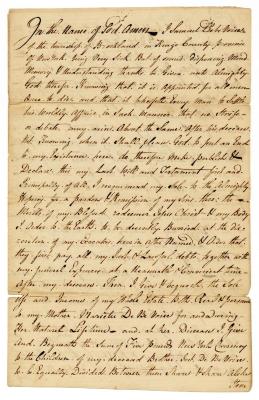 In the Name of God Amen. I Samuel De Be Voice
of the township of Brookland in Kings County Province
of New York being Very Sick But of sound Disposing Mind
Memory & Understanding thanks be Given unto Almighty
God therefor Knowing that it is Appointed for all Men
Once to Die and that it behoveth Every Man to Settle
his Worldly Affairs in Such Manner that no Strife
or debate may arise About the Same After his decease
Not knowing when it Shall please God to put an End
to my Existence here do therefor make publish &
Declare this my Last Will and Testament first and
Principally of All I recommend my Soul to the Almighty
Hoping for a pardon & Remission of my Sins thro the
Merits of my Blessed redeemer Jesus Christ & my Body
I Order to the Earth to be decently Buried at the dis-
cretion of my Executor herein After Named & Order that
they first pay all my Just & Lawful debts together with
my funeral Expences at a Reasonable & Convenient time
After my decease Item I Give & Bequeath the
and Income of my Whole Estate Both Real & personal
to my Mother De Be Voice for and during
Her Natural Lifetime and at her Decease I Give
And Bequeath the Sum of Five pounds New York Currency
to the Children of my deceased Brother De Be Voice
to be Equally Divided Between them Share & Share Alike
Item